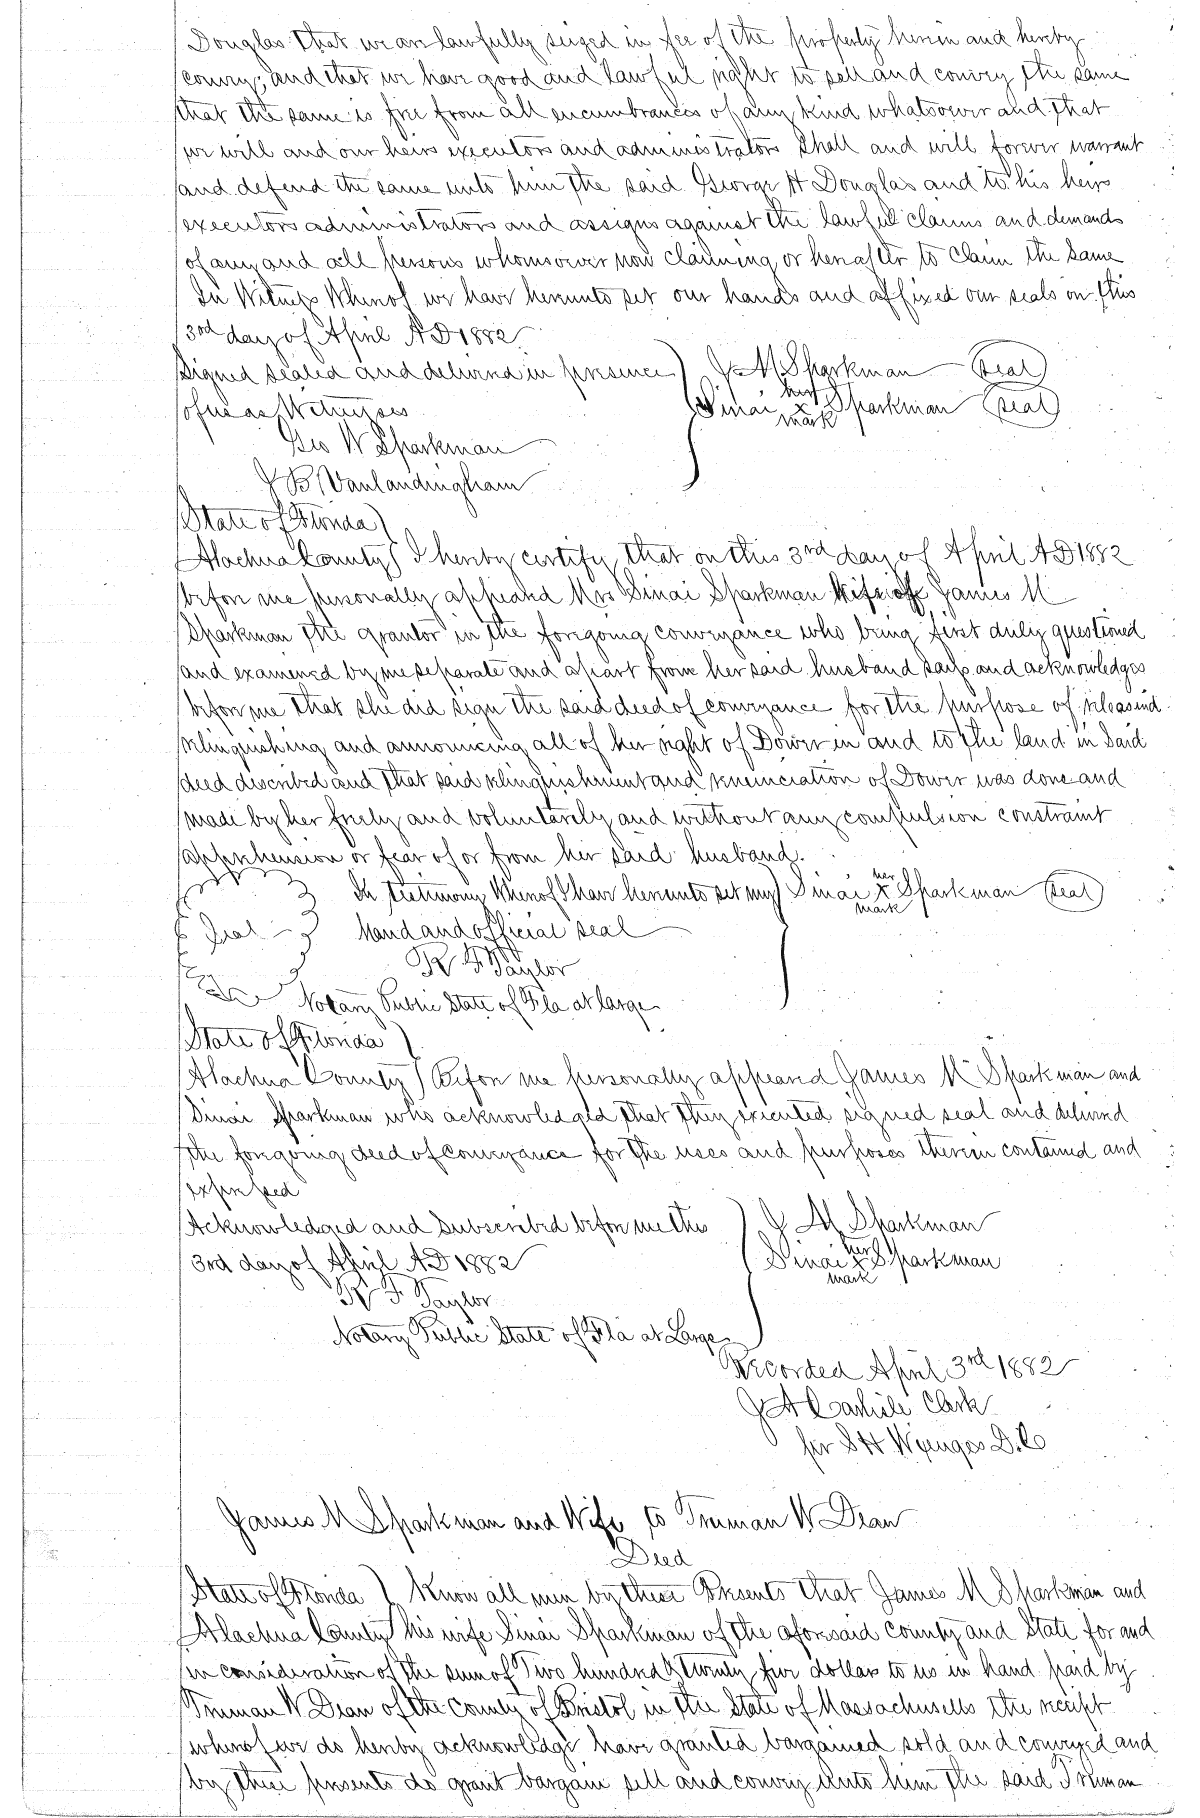 Douglas that we are lawfully seized in fee of the property herein and hereby
convey, and that we have good and lawful right to sell and convey the same
that the same is free from all encumbrances of any kind whatsoever and that
we will and our heirs executors and administrators shall and will forever warrant
and defend the same unto him the said George H Douglas and to his heirs
executors administrators and assigns against the lawful claims and demands
of any and all persons whomsoever now claiming or hereafter to claim the same
In Witness Whereof we have hereunto set our hands and affixed our seals on this
3rd day of April AD 1882
Signed sealed and delivered in presence) J M Sparkman (seal)
of us as Witnesses Sinai her x mark Sparkman (seal)
Geo W Sparkman
J B Vanlandingham
State of Florida)
Alachua County) I hereby certify that on this 3rd day of April AD 1882
before me personally appeared Mrs Sinai Sparkman Wife of James M
Sparkman the grantor in the foregoing conveyance who being first duly questioned
and examened by me separate and apart from her said husband says and acknowledges
before me that she did sign the said deed of conveyance for the purpose of
relinquishing and announcing all of her right of Dower in and to the land in said
deed discribed and that said relinquishment and renunciation of Dower was done and
made by her freely and voluntarely and without any compulsion constraint
apprehension or fear of or from her said husband.
In testimony Whereof I have hereunto set my) Sinai her x mark Sparkman (seal)
Seal hand and official seal
R F Taylor
Notary Public State of Fla at large
State of Florida)
Alachua County) Before me personally appeared James M Sparkman and
Sinai Sparkman who acknowledged that they executed signed seal and delivered
the foregoing deed of conveyance for the uses and purposes therein contained and
expressed
Acknowledged and Subscribed before me this ) J M Sparkman
3rd day of April AD 1882 Sinai her x mark Sparkman
R F Taylor
Notary Public State of Fla at Large
Recorded April 3rd 1882
J A Carlile Clerk
per S H D.C
James M Sparkman and Wife to Truman W Dean
Deed
State of Florida ) Know all men by these Presents that James M Sparkman and
Alachua County his wife Sinai Sparkman of the aforesaid county and State for and
in consideration of the sum of Two hundred & twenty five dollars to us in hand paid by
Truman W Dean of the county of Bristol in the State of Massachusells the receipt
whereof we do hereby acknowledge have granted bargained sold and conveyed and
by these presents do grant bargain sell and convey unto him the said Truman